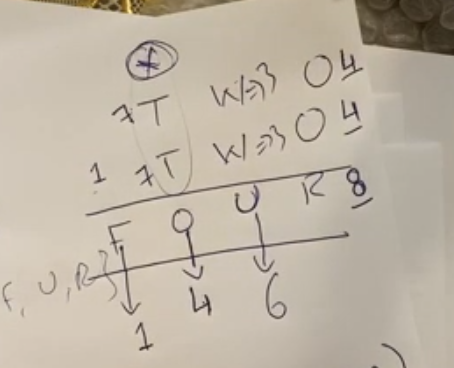 7T W=>3 O4
1 7T W=>3 O4
F O U R 8
F, U, R}
1 4 6